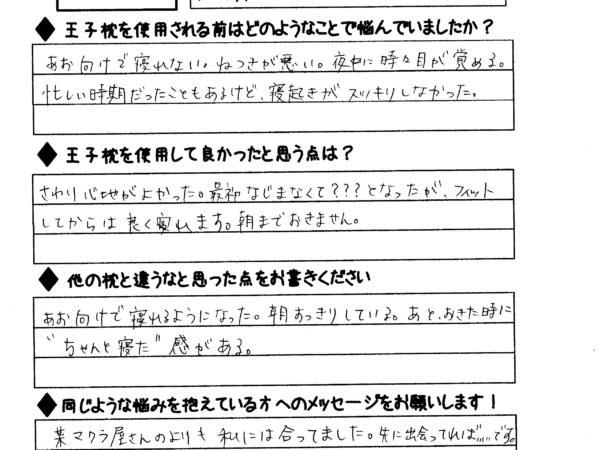 ◆王子枕を使用される前はどのようなことで悩んでいましたか？
あお向けで寝れない。ねつきが悪い。夜中に時々目が覚める。
忙しい時期だったこともあるけど、寝起きがスッキリしなかった。
◆王子枕を使用して良かったと思う点は？
さわり心地がよかった。最初なじまなくて？？？となったが、フィット
してからは良く寝れます。朝までおきません。
◆他の枕と違うなと思った点をお書きください
あお向けで寝れるようになった。朝すっきりしている。あと、おきた時に
"ちゃんと寝た"感がある。
◆同じような悩みを抱えている方へのメッセージをお願いします！
某マクラ屋さんのよりも私には合ってました。先に出会ってれば……です。